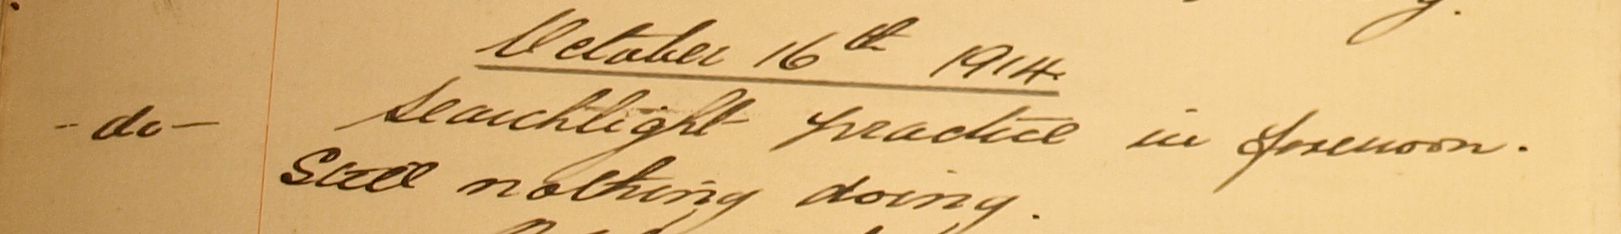 October 16th 1914.
- do -
Searchlight practice in forenoon.
Still nothing doing.